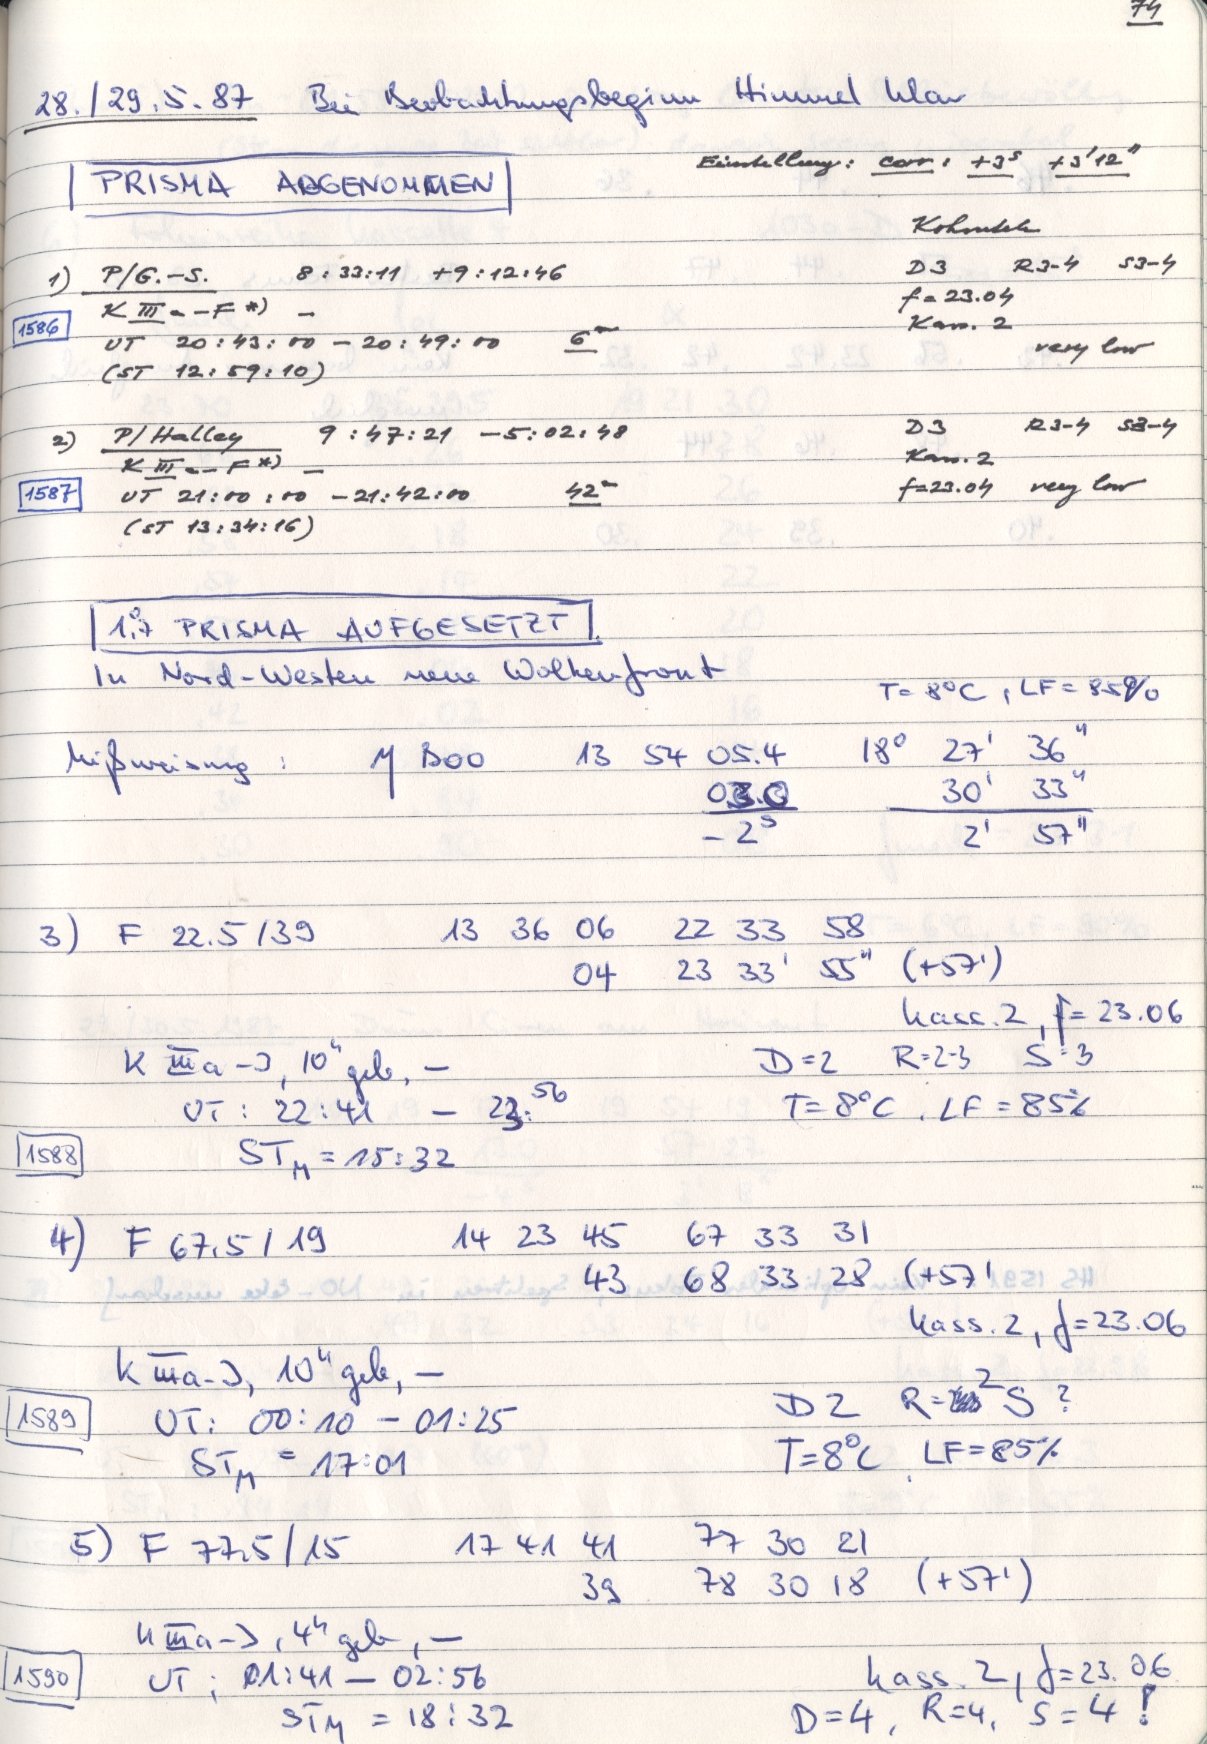 74
28./29.5.87 Bei Beobachtungsbeginn Himmel klar
PRISMA ABGENOMMEN
Einstellung: corr: +3s +3'12"
Kohoutek
1) P/G.-S. 8:33:11 +9:12:46 D3 R3-4 S3-4
K IIIa-F *) — f=23.04
1586
Kass. 2
UT 20:43:00 - 20:49:00 6m very low
(ST 12:59:10)
2) P/Halley 9:47:21 -5:02:48 D3 R3-4 S3-4
K IIIa-F *) — Kass. 2
1587 UT 21:00:00 - 21:42:00 42m f=23.04 very low
(ST 13:34:16)
1.°7 PRISMA AUFGESETZT
In Nord-Westen neue Wolkenfront
T=8°C, LF=85%
Mißweisung: η BOO 13 54 05.4 18° 27' 36"
03.0 30' 33"
-2s 2' 57"
3) F 22.5/39 13 36 06 22 33 58
04 23 33' 55" (+57')
Kass. 2, f=23.06
K IIIa-J, 10h geb, — D=2 R=2-3 S=3
UT: 22:41 - 23:56 T=8°C, LF=85%
1588 STM = 15:32
4) F 67.5/19 14 23 45 67 33 31
43 68 33 28 (+57'
Kass. 2, f=23.06
K IIIa-J, 10h geb, —
D2 R=2 S ?
1589 UT: 00:10 - 01:25
T=8°C, LF=85%
STM = 17:01
5) F 77.5/15 17 41 41 77 30 21
39 78 30 18 (+57')
K IIIa-J, 4h geb, —
1590 UT: 01:41 - 02:56 Kass. 2, f=23.06
STM = 18:32 D=4, R=4, S=4!